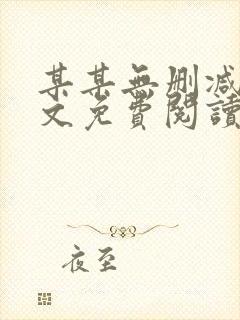 某某無刪减
文免費閱讀
夜至